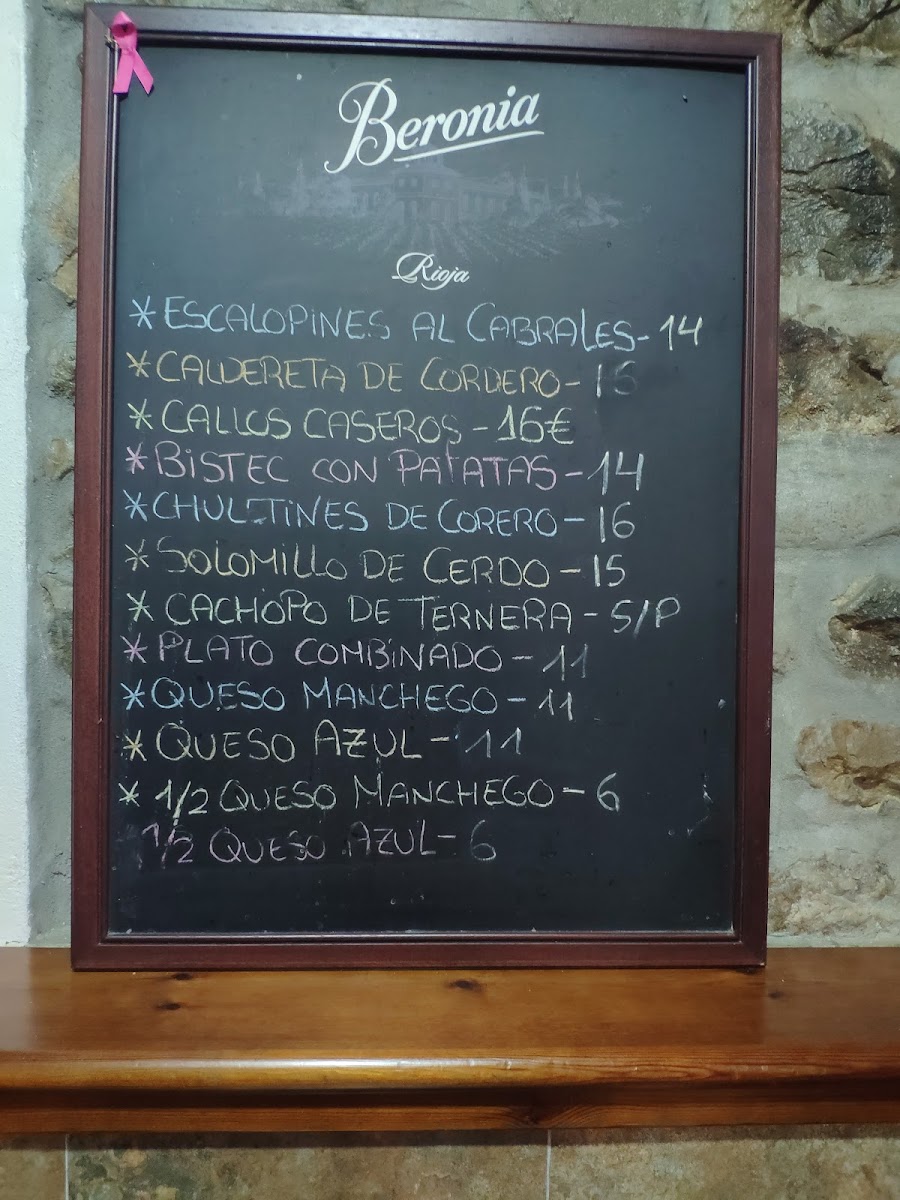 Beronia
Rioja
*ESCALOPINES AL CABRALES-14
*CALDERETA DE CORDERO-
*CALLOS CASEROS-16€
*BISTEC CON PATATAS-14
*CHULETINES DE CORERO-16
*SOLOMILLO DE CERDO-15
*CACHOPO DE TERNERA-S/P
*PLATO COMBINADO-11
*QUESO MANCHEGO-11
*QUESO AZUL-11
*1/2 QUESO MANCHEGO-6
1/2 QUESO AZUL-6